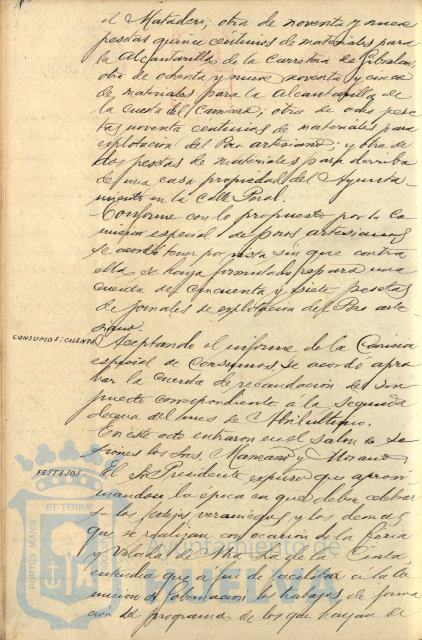 el Matadero; otra de noventa y nueve
pesetas quince céntimos de materiales para
la alcantarilla de la Carretera de Gibraleon;
otra de ochenta y nueve noventa y cinco
de materiales para la alcantarilla de
la cuesta del Carnicero; otra de pese
tas noventa centimos de materiales para
explotacion del Pozo artesiano; y otra de
dos pesetas de materiales para derribo
de una casa propiedad del Ayunta-
miento en la calle
Conforme con lo propuesto por la Co
mision especial de pozos artesianos
se acordó tener por vista sin que contra
ella se haya formulado reparo una
cuenta de cincuenta y siete pesetas
de jornales de explotacion del Pozo arte
siano.
CONSUMOS: CUENTA
Aceptando el informe de la Comision
especial de Consumos, se acordó apro
bar la cuenta de recaudacion del im
puesto correspondiente á la segunda
decena del mes de Abril ultimo.
En este acto entraron en el salon de se
siones los Sres. Manzano y
FESTEJOS
El Sr. Presidente expuso que aproxi
mandose la epoca en que deben celebrar
se los festejos veraniegos y los demas
que se realizan con ocasion de la feria
y Velada de Ntra. Sra. de la Cinta,
entendia que a fin de facilitar a la Co
mision de Gobernacion los trabajos de forma
cion del programa de los que hayan de
PORTUS MARIS ET TERRAE
Ayuntamiento de
HUELVA